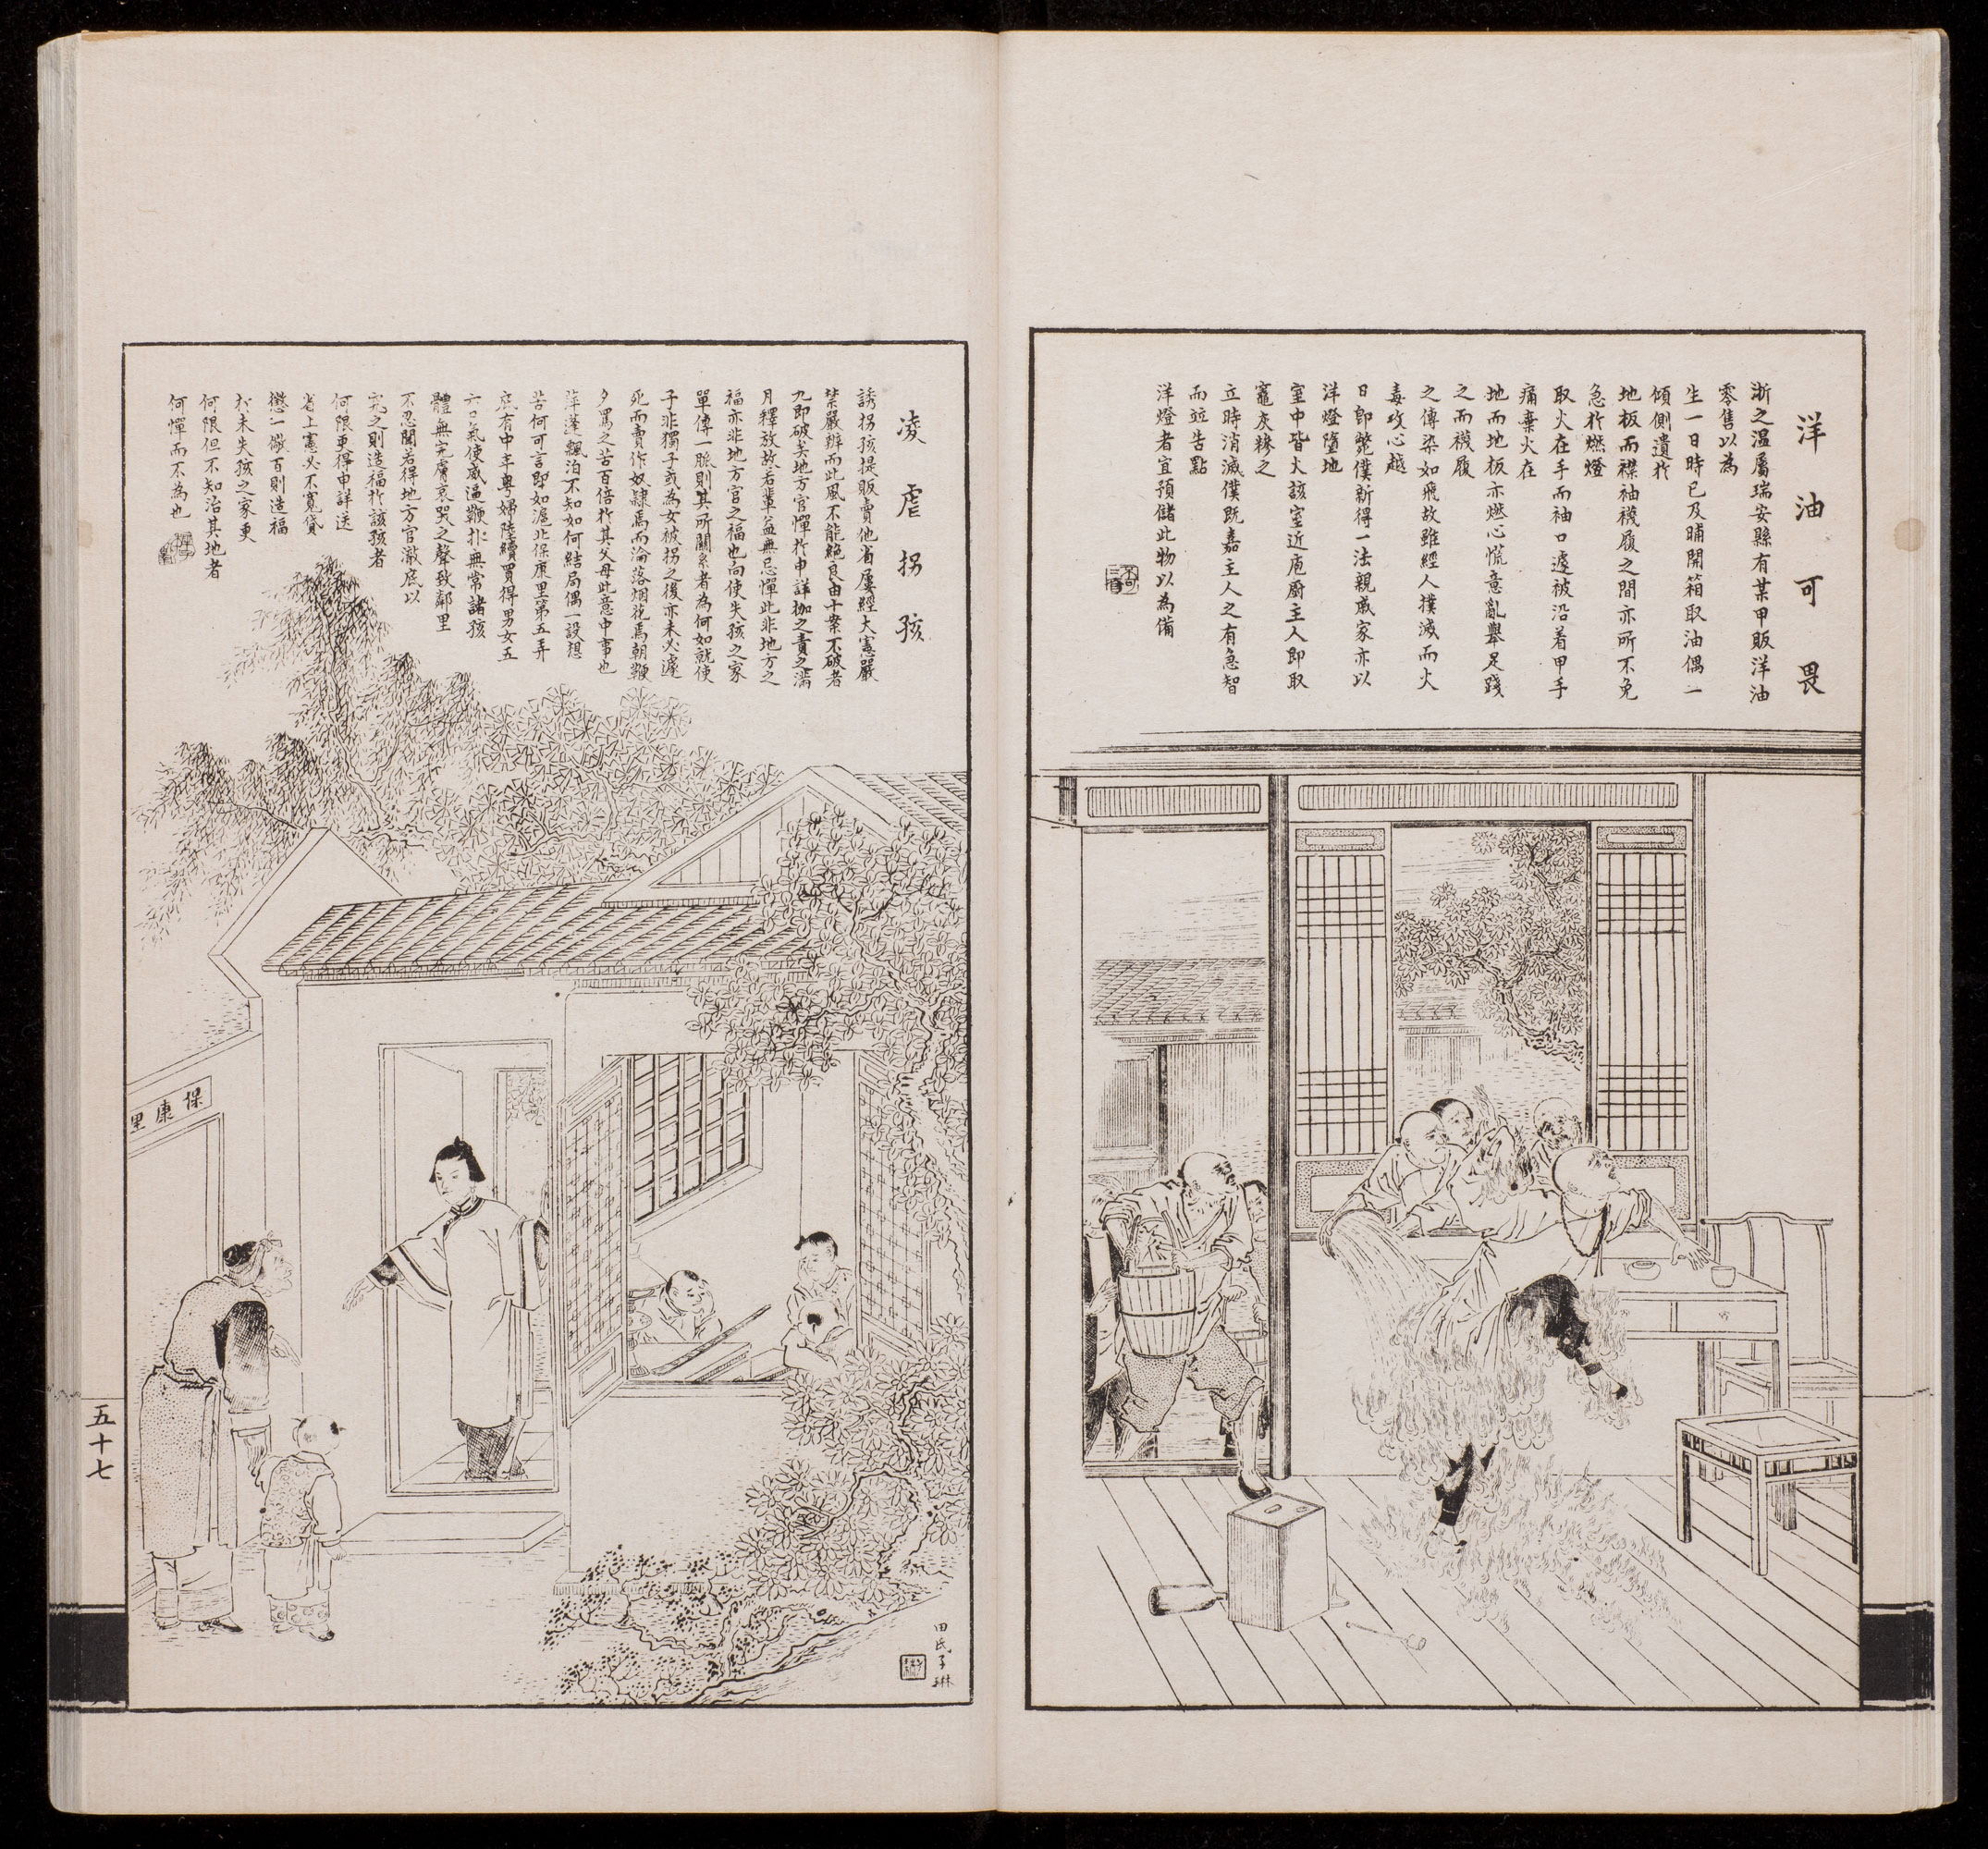 洋油可畏
浙之溫屬瑞安縣有某甲販洋油
零售以為
生一日時已及晡開箱取油偶一
傾側遺於
地板而襟袖襪履之間亦所不免
急於燃燈
取火在手而袖口遽被沿着甲手
痛棄火在
地而地板亦燃心慌意亂舉足踐
之而襪履
之傳染如飛故雖經人撲滅而火
毒攻心越
日即斃僕新得一法親戚家亦以
洋燈墮地
室中皆火該室近庖廚主人即取
竈灰糝之
立時消滅僕既嘉主人之有急智
而竝告點
洋燈者宜預儲此物以為備
凌虐拐孩
誘拐孩提販賣他省屢經大憲嚴
禁嚴辦而此風不能絕良由十案不破者
九即破矣地方官憚於申詳枷之責之滿
月釋放故若輩益無忌憚此非地方之
福亦非地方官之福也向使失孩之家
單傳一脈則其所關系者為何如就使
子非獨子或為女被拐之後亦未必遽
死而賣作奴隸焉而淪落烟花焉朝鞭
夕罵之苦百倍於其父母此意中事也
萍蓬飄泊不知如何結局偶一設想
苦何可言即如滬北保康里第五弄
底有中年粵婦陸續買得男女五
六口氣使威逼鞭扑無常諸孩
體無完膚哀哭之聲致鄰里
不忍聞若得地方官澈底以
究之則造福於該孩者
何限更得申詳送
省上憲必不寬貸
懲一儆百則造福
於未失孩之家更
何限但不知治其地者
何憚而不為也
保康里
田氏子琳
五十七